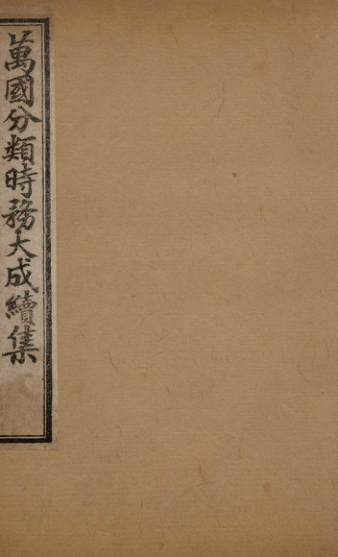 萬國分類時務大成續集